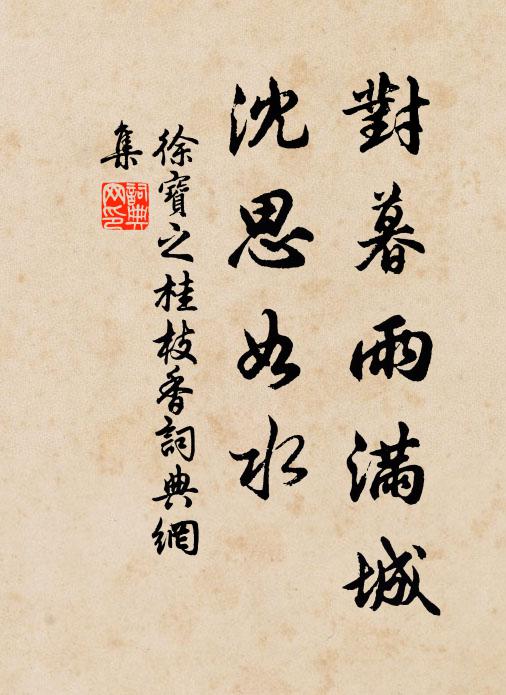 對暮雨滿城
沈思如水
徐寶之桂枝香詞典網
集
詞典
网印